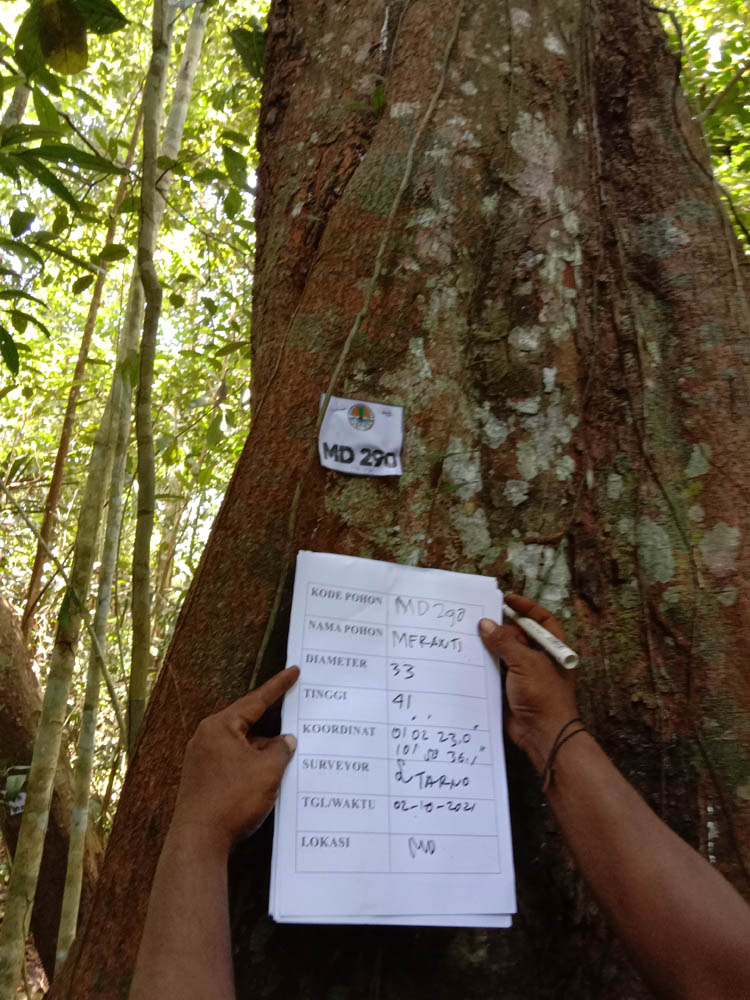 MD 290
KODE POHON MD 290
NAMA POHON MERANTI
DIAMETER 33
TINGGI 41
KOORDINAT 01 02 23,0"
101 58 36,1"
SURVEYOR TARNO
TGL/WAKTU 02-10-2021
LOKASI MD